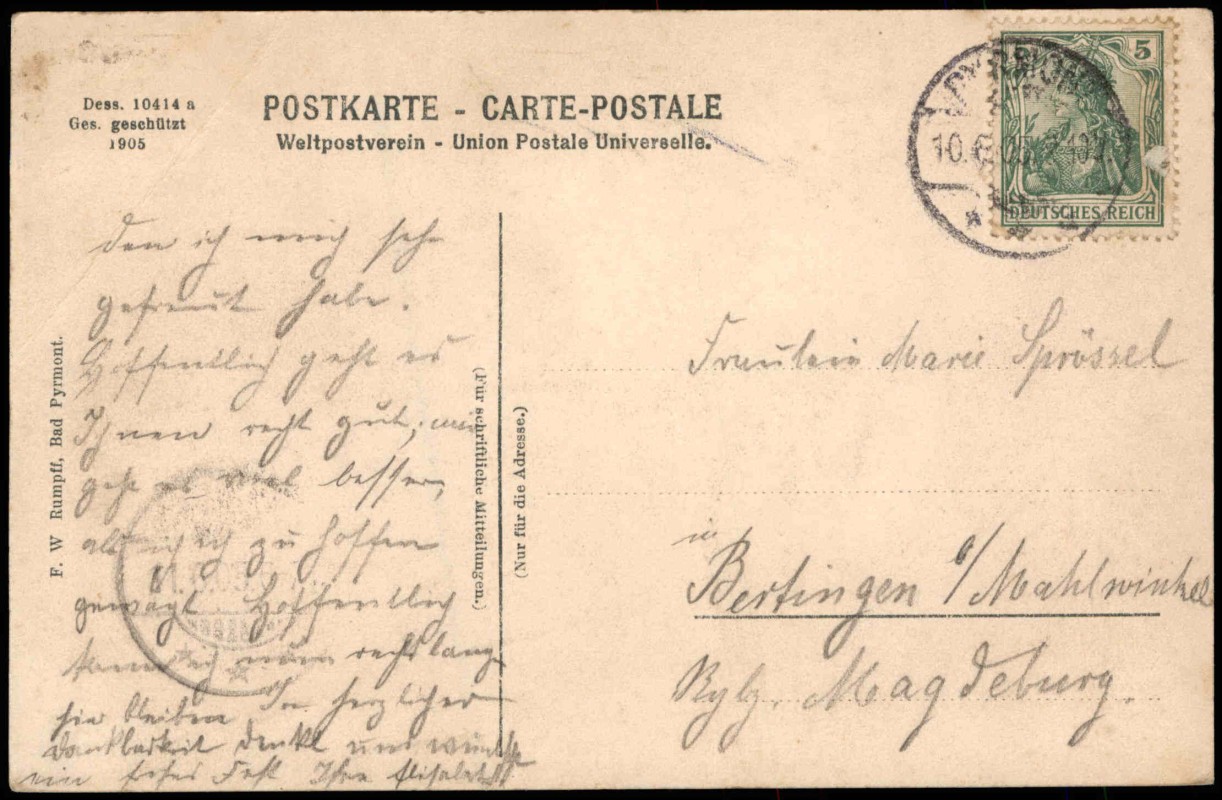 Dess. 10414 a
Ges. geschützt
1905
POSTKARTE - CARTE-POSTALE
Weltpostverein - Union Postale Universelle.
5
DEUTSCHES REICH
F. W Rumpff, Bad Pyrmont.
(Für schriftliche Mitteilungen.)
(Nur für die Adresse.)
den ich mich sehr
gefreut habe.
Hoffentlich geht es
Ihnen recht gut, mir
geht es viel besser,
als ich zu hoffen
gewagt. Hoffentlich
kann ich nun recht lange
hier bleiben In herzlicher
Dankbarkeit denkt und wünscht
ein Fest Ihre Elisabeth
Fräulein Marie Sprössel
in
Bertingen b/Mahlwinkel
Magdeburg.